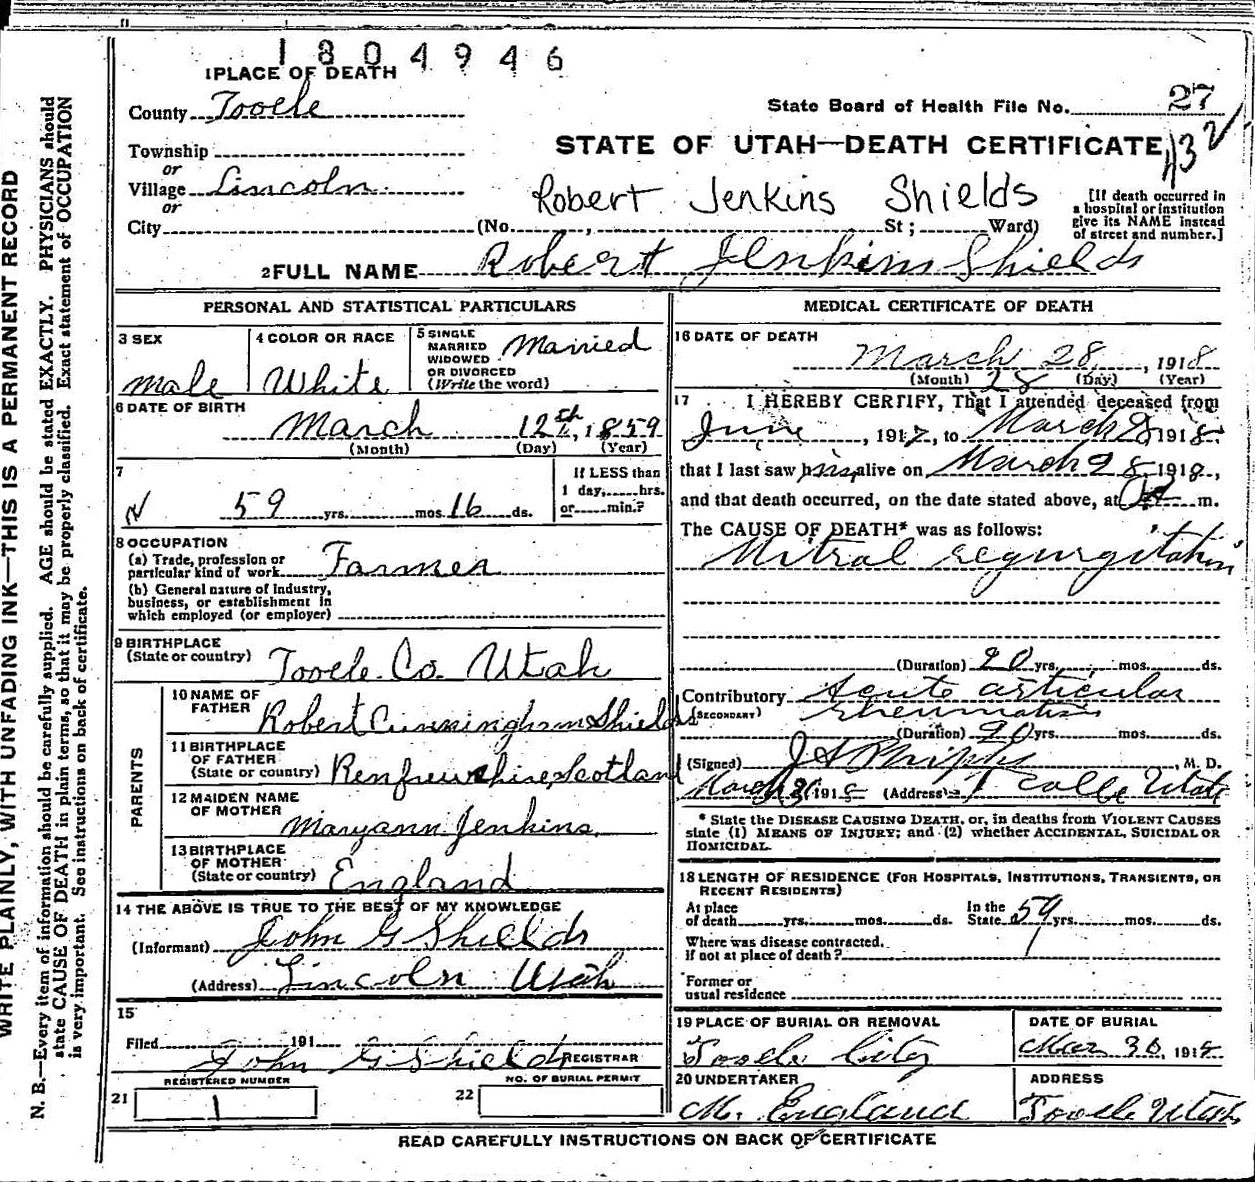 1804946
1 PLACE OF DEATH
County Tooele
State Board of Health File No. 27
Township
STATE OF UTAH—DEATH CERTIFICATE
432
or
Village Lincoln
or
Robert Jenkins Shields
[If death occurred in
a hospital or institution
give its NAME instead
of street and number.]
City (No. , St; Ward)
2 FULL NAME Robert Jenkins Shields
PERSONAL AND STATISTICAL PARTICULARS
3 SEX
Male
4 COLOR OR RACE
White
5 SINGLE
MARRIED
WIDOWED
OR DIVORCED
(Write the word)
Married
6 DATE OF BIRTH
March 12th, 1859
(Month) (Day) (Year)
7
59 yrs. mos. 16 ds.
If LESS than
1 day, hrs.
or min.?
8 OCCUPATION
(a) Trade, profession or
particular kind of work Farmer
(b) General nature of industry,
business, or establishment in
which employed (or employer)
9 BIRTHPLACE
(State or country) Tooele Co. Utah
PARENTS
10 NAME OF
FATHER Robert Cunningham Shields
11 BIRTHPLACE
OF FATHER
(State or country) Renfrewshire, Scotland
12 MAIDEN NAME
OF MOTHER Maryann Jenkins
13 BIRTHPLACE
OF MOTHER
(State or country) England
14 THE ABOVE IS TRUE TO THE BEST OF MY KNOWLEDGE
(Informant) John G Shields
(Address) Lincoln Utah
15
Filed 191
John G Shields REGISTRAR
REGISTERED NUMBER
21 1
NO. OF BURIAL PERMIT
22
MEDICAL CERTIFICATE OF DEATH
16 DATE OF DEATH
March 28, 1918
(Month) 28 (Day) (Year)
17 I HEREBY CERTIFY, That I attended deceased from
June, 1917, to March 28 1918
that I last saw him alive on March 28 1918,
and that death occurred, on the date stated above, at m.
The CAUSE OF DEATH* was as follows:
Mitral regurgitation
(Duration) 20 yrs. mos. ds.
Contributory Acute articular
(SECONDARY) rheumatism
(Duration) 20 yrs. mos. ds.
(Signed) J A Phipps, M. D.
March 1918 (Address) Tooele Utah
* State the DISEASE CAUSING DEATH, or, in deaths from VIOLENT CAUSES
state (1) MEANS OF INJURY; and (2) whether ACCIDENTAL, SUICIDAL OR
HOMICIDAL.
18 LENGTH OF RESIDENCE (FOR HOSPITALS, INSTITUTIONS, TRANSIENTS, OR
RECENT RESIDENTS)
At place
of death yrs. mos. ds.
In the
State 59 yrs. mos. ds.
Where was disease contracted.
if not at place of death?
Former or
usual residence
19 PLACE OF BURIAL OR REMOVAL
Tooele City
DATE OF BURIAL
Mar 30, 1918
20 UNDERTAKER
M. England
ADDRESS
Tooele Utah
READ CAREFULLY INSTRUCTIONS ON BACK OF CERTIFICATE
WRITE PLAINLY, WITH UNFADING INK—THIS IS A PERMANENT RECORD
N. B.—Every item of information should be carefully supplied. AGE should be stated EXACTLY. PHYSICIANS should
state CAUSE OF DEATH in plain terms, so that it may be properly classified. Exact statement of OCCUPATION
is very important. See instructions on back of certificate.